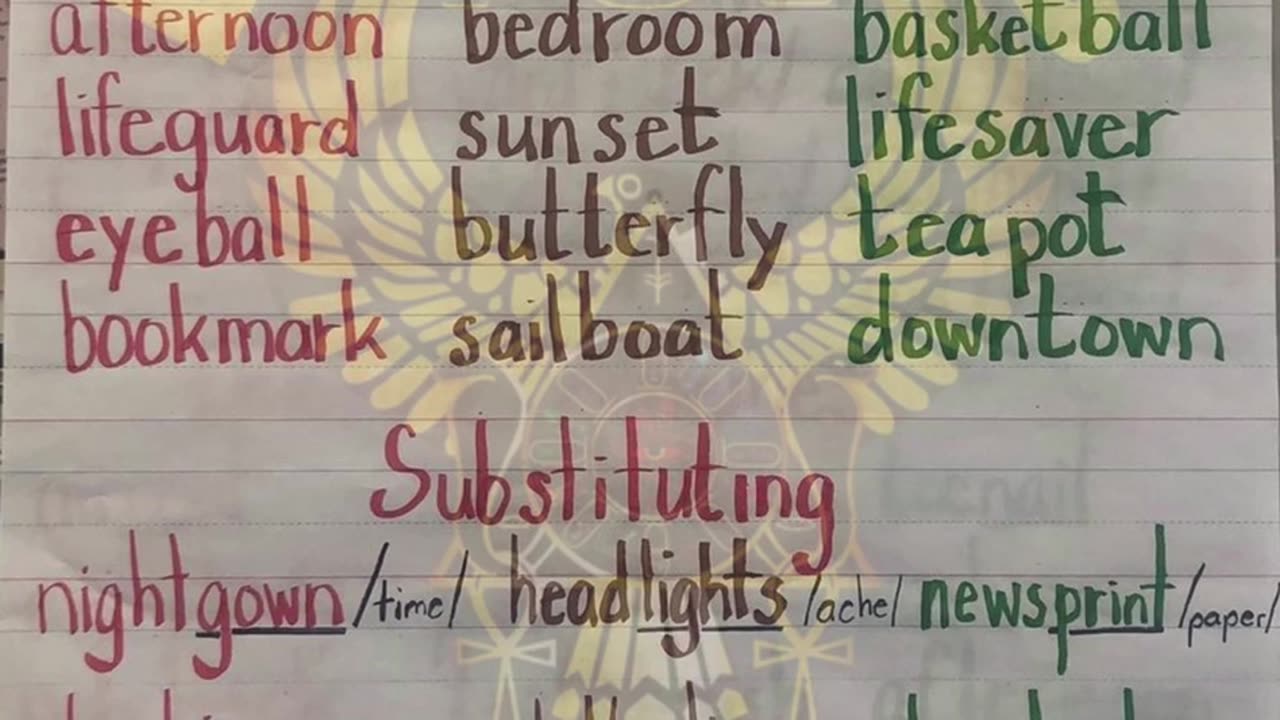 afternoon bedroom basketball
lifeguard sunset lifesaver
eyeball butterfly teapot
bookmark sailboat downtown
Substituting
nightgown /time/ headlights /ache/ newsprint /paper/